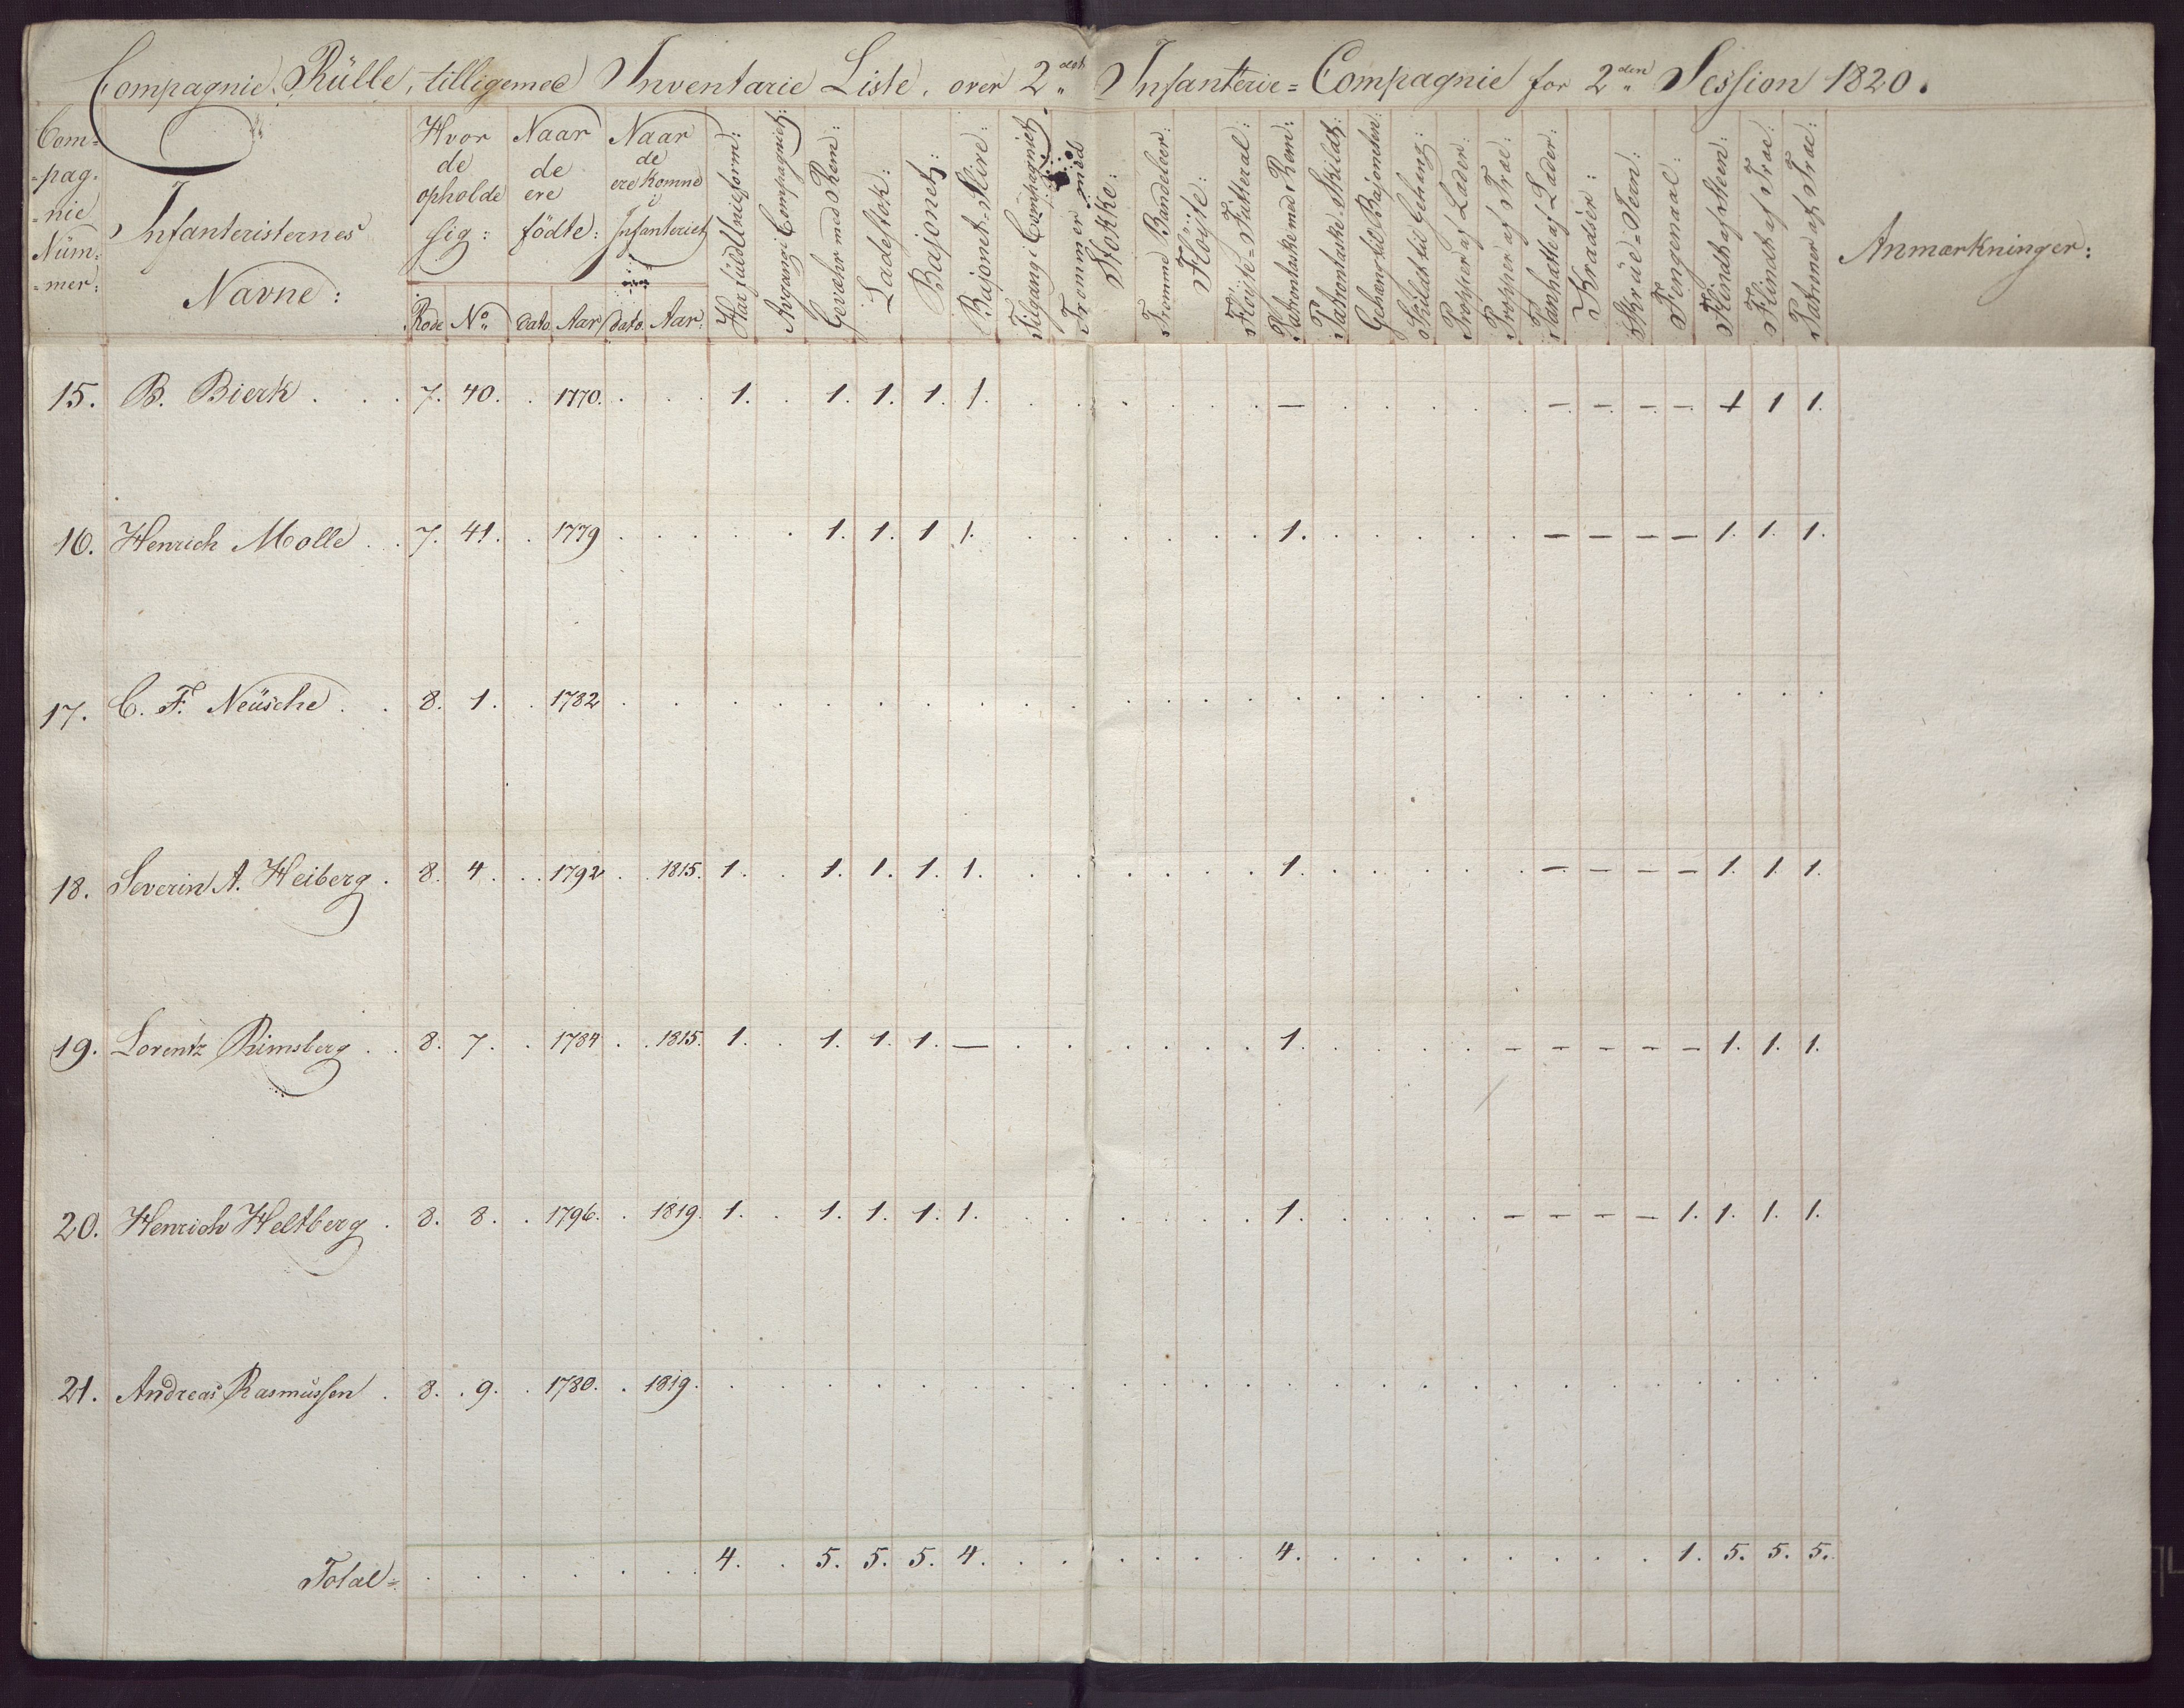 Compagnie Rülle, tilligemed Inventarie Liste, over 2det Infanterie=Compagnie for 2den Session 1820.
Com=
=pag=
=nie
Nüm=
=mer:
Infanteristernes
Navne:
Hvor
de
opholde
sig:
Rode No
Naar
de
ere
födte:
Dato. Aar
Naar
de
ere komne
i
Infanteriet
Dato. Aar:
Har füld Uniform:
Avgang i Compagniet:
Gevæhr med Rem:
Ladestok:
Bajonet:
Bajonet-Skire:
Tilgang i Compagniet
Trommer med
Stokke:
Tromme Bandeleer:
Flöyte:
Flöyte=Fütteral:
Patrontaske med Rem:
Patrontaske-Skildt:
Gehæng til Bajonetten:
Skildt til Gehæng:
Propper af Læder:
Propper af Træ:
Panhætte af Læder:
Kradser:
Skrüe=Jern:
Fengenaal:
Flindt af Steen:
Flindt af Træ:
Patroner af Træ:
Anmærkninger:
15. B. Bierk . . . 7. 40. . 1770. . . . 1. . 1. 1. 1. 1. . . . . . . — . . . . . — — — — 1 1 1.
16. Henrich Molle . . 7. 41. . 1779 . . . . . 1. 1. 1 1. . . . . . . 1. . . . . . — — — — 1. 1. 1.
17. C. F. Neüsche . . 8. 1. . 1782 . . . . . . . . . . . . . . . . . . . . . . . . . . .
18. Severin A. Heiberg . 8. 4. . . 1792 . . 1815. 1. . 1. 1. 1. 1. . . . . . . 1. . . . . . — — — — 1. 1. 1.
19. Lorentz Rimsberg . . 8. 7. . 1784 . . 1815. 1. . 1. 1. 1. — . . . . . . 1. . . . . — — — — — 1. 1. 1.
20. Henrich Heltberg . 8. 8. . 1796. . 1819. 1. . 1. 1. 1. 1. . . . . . . 1. . . . . — — — — 1. 1. 1. 1.
21. Andreas Rasmüssen . 8. . 9. . 1780. . 1819. . . . . . . . . . . . . . . . . . . . . . . . .
Total= . . . . . . . 4. . 5. 5. 5. 4. . . . . . . 4. . . . . . . . . 1. 5. 5. 5.